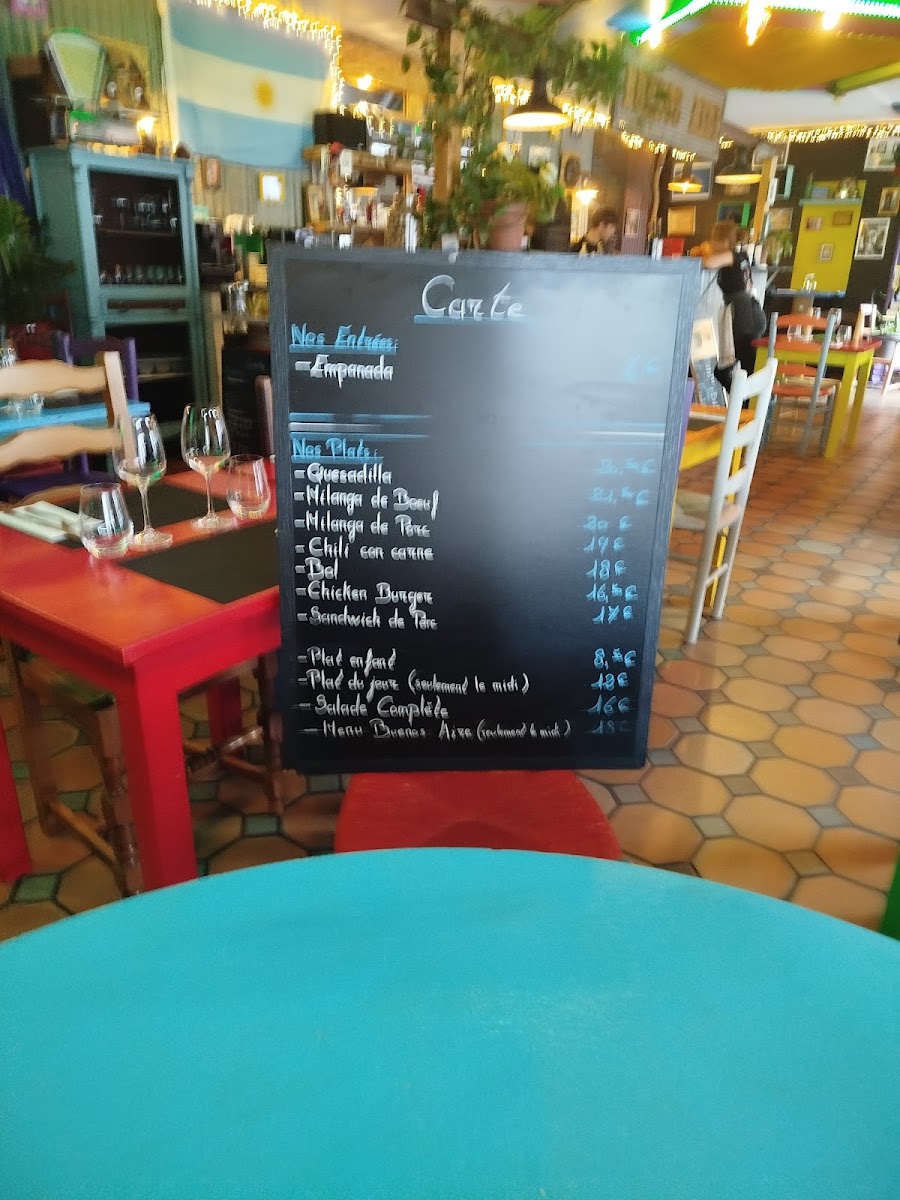 Carte
Nos Entrées:
- Empanada 6€
Nos Plats:
- Quesadilla
- Milanga de Boeuf 21,50€
- Milanga de Porc 20€
- Chili con carne 19€
- Bol 18€
- Chicken Burger 16,50€
- Sandwich de Porc 17€
- Plat enfant 8,50€
- Plat du jour (seulement le midi) 12€
- Salade Complète 16€
- Menu Buenos Aire (seulement le midi) 18€